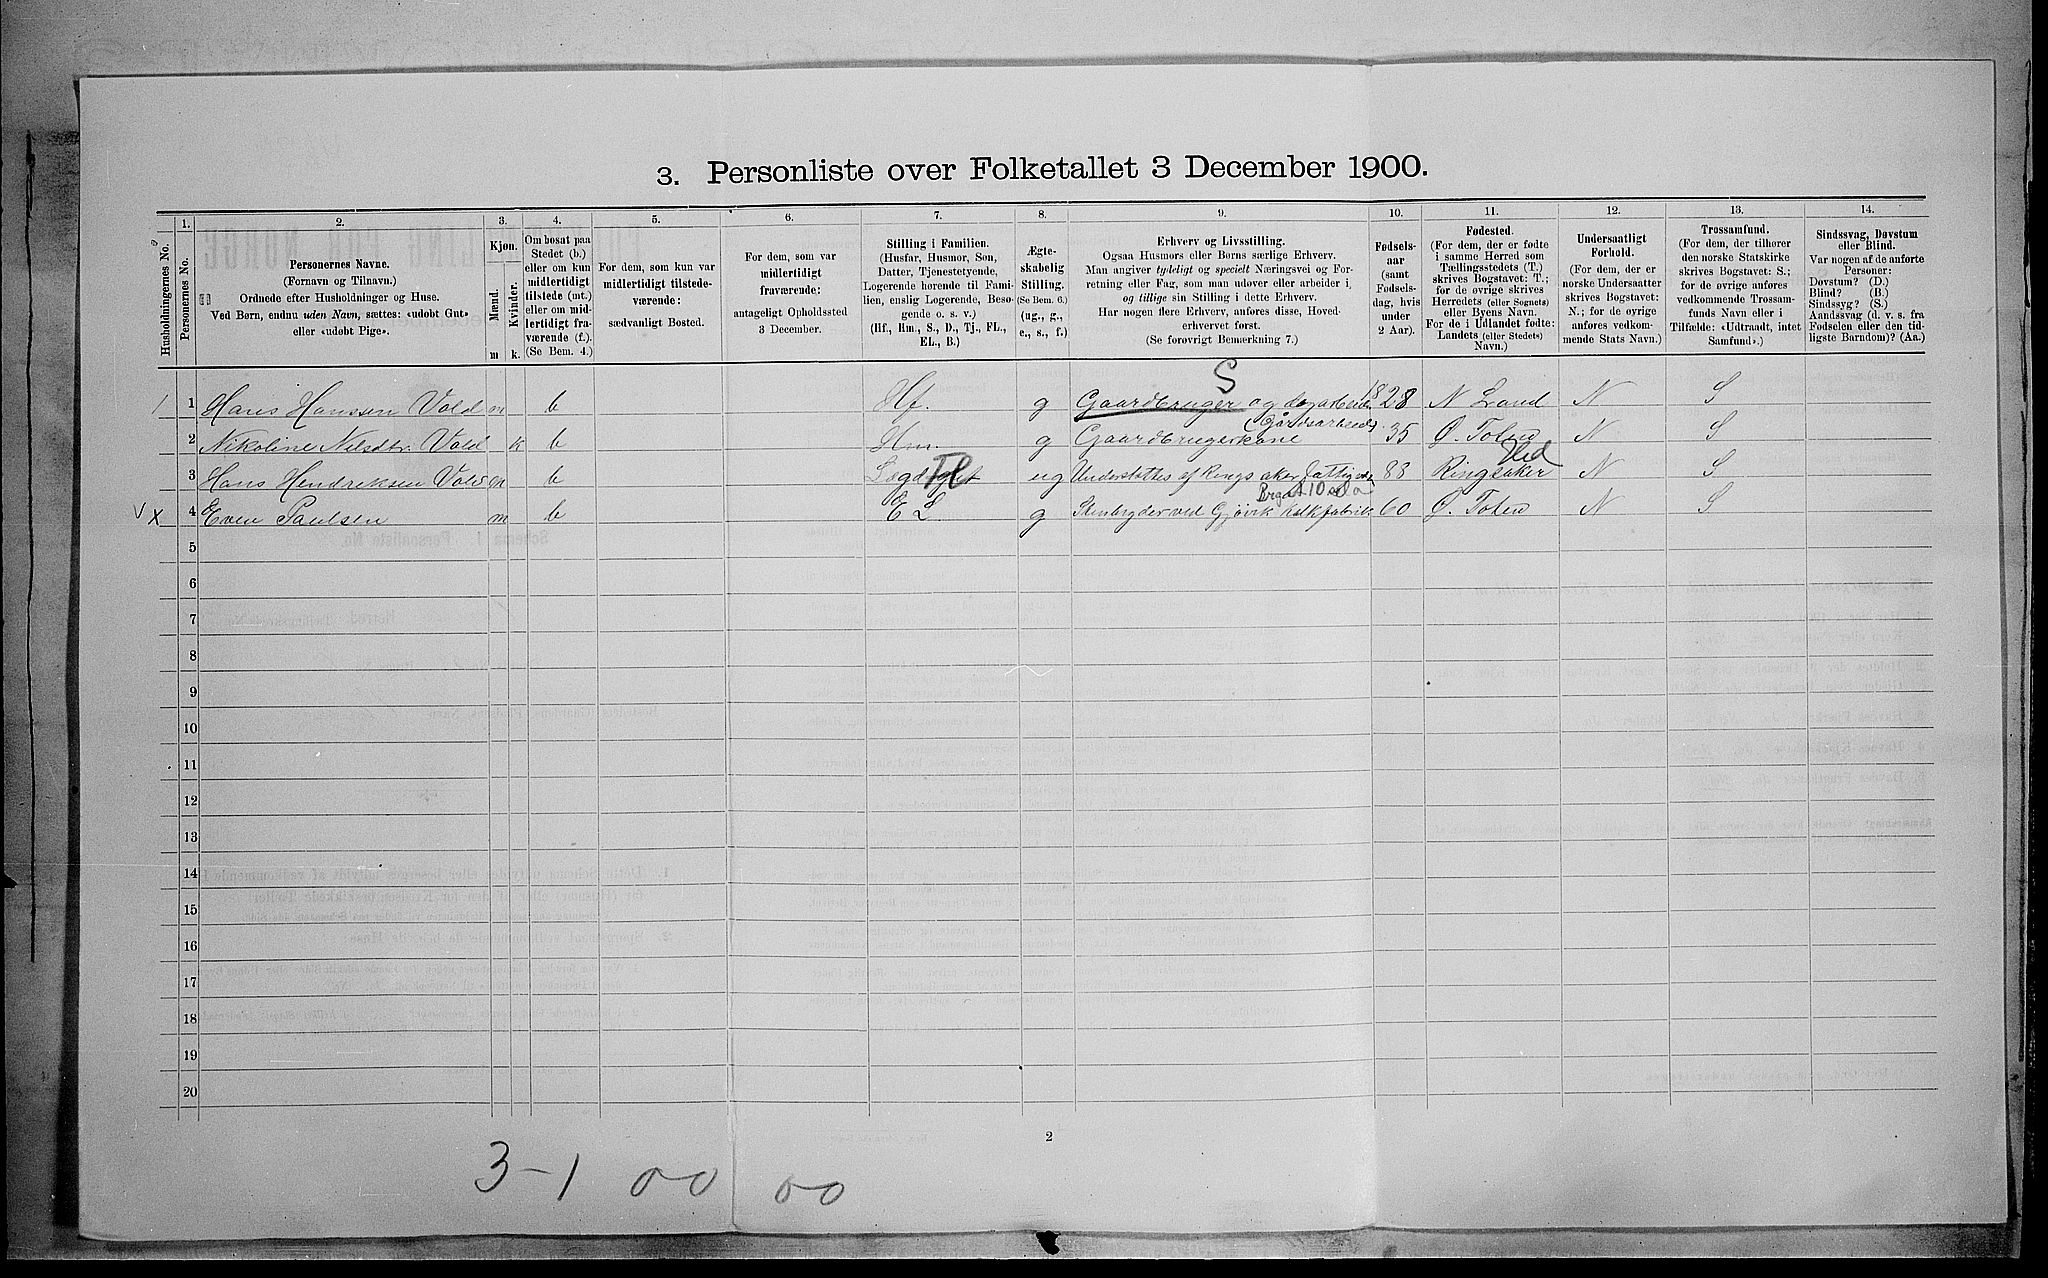 3. Personliste over Folketallet 3 December 1900.
Husholdningernes No.
1. Personernes No.
2. Personernes Navne.
(Fornavn og Tilnavn.)
Ordnede efter Husholdninger og Huse.
Ved Børn, endnu uden Navn, sættes: «udøbt Gut»
eller «udøbt Pige».
3. Kjøn.
Mænd. m
Kvinder. k.
4. Om bosat paa
Stedet (b.)
eller om kun
midlertidigt
tilstede (mt.)
eller om mid-
lertidigt fra-
værende (f.).
(Se Bem. 4.)
5. For dem, som kun var
midlertidigt tilstede-
værende:
sædvanligt Bosted.
6. For dem, som var
midlertidigt
fraværende:
antageligt Opholdssted
3 December.
7. Stilling i Familien.
(Husfar, Husmor, Søn,
Datter, Tjenestetyende,
Logerende hørende til Fami-
lien, enslig Logerende, Besø-
gende o. s. v.)
(Hf., Hm., S., D., Tj., FL.,
EL., B.)
8. Ægte-
skabelig
Stilling.
(Se Bem. 6.)
(ug., g.,
e., s., f.)
9. Erhverv og Livsstilling.
Ogsaa Husmors eller Børns særlige Erhverv.
Man angiver tydeligt og specielt Næringsvei og For-
retning eller Fag, som man udøver eller arbeider i,
og tillige sin Stilling i dette Erhverv.
Har nogen flere Erhverv, anføres disse, Hoved-
erhvervet først.
(Se forøvrigt Bemærkning 7.)
10. Fødsels-
aar
(samt
Fødsels-
dag, hvis
under
2 Aar).
11. Fødested.
(For dem, der er fødte
i samme Herred som
Tællingsstedets (T.)
skrives Bogstavet: T.;
for de øvrige skrives
Herredets (eller Sognets)
eller Byens Navn.
For de i Udlandet fødte:
Landets (eller Stedets)
Navn.)
12. Undersaatligt
Forhold.
(For dem, der er
norske Undersaatter
skrives Bogstavet:
N.; for de øvrige
anføres vedkom-
mende Stats Navn.)
13. Trossamfund.
(For dem, der tilhører
den norske Statskirke
skrives Bogstavet: S.;
for de øvrige anføres
vedkommende Trossam-
funds Navn eller i
Tilfælde: «Udtraadt, intet
Samfund».)
14. Sindssvag, Døvstum
eller Blind.
Var nogen af de anførte
Personer:
Døvstum? (D.)
Blind? (B.)
Sindssyg? (S.)
Aandssvag (d. v. s. fra
Fødselen eller den tid-
ligste Barndom)? (Aa.)
S
1 1 Hans Hansen Vold m b Hf. g Gaardbruger og dagarbeider 1828 N Land N S
(Gårdsarbeid)
2 Nikoline Nilsdtr. Vold k b Hm. g Gaardbrugerkone 35 Ø. Toten N S
Fl Hed
3 Hans Hendriksen Vold m b Lægdsget ug Understøttes af Ringsaker Fattigvæs 88 Ringsaker N S
V X 4 Even Paulsen m b E L g Stenbryder ved Gjøvik kalkfabrik 60 Ø. Toten N S
5
6
7
8
9
10
11
12
13
14
15
16
17
18
19
20
2
3-1 00 00